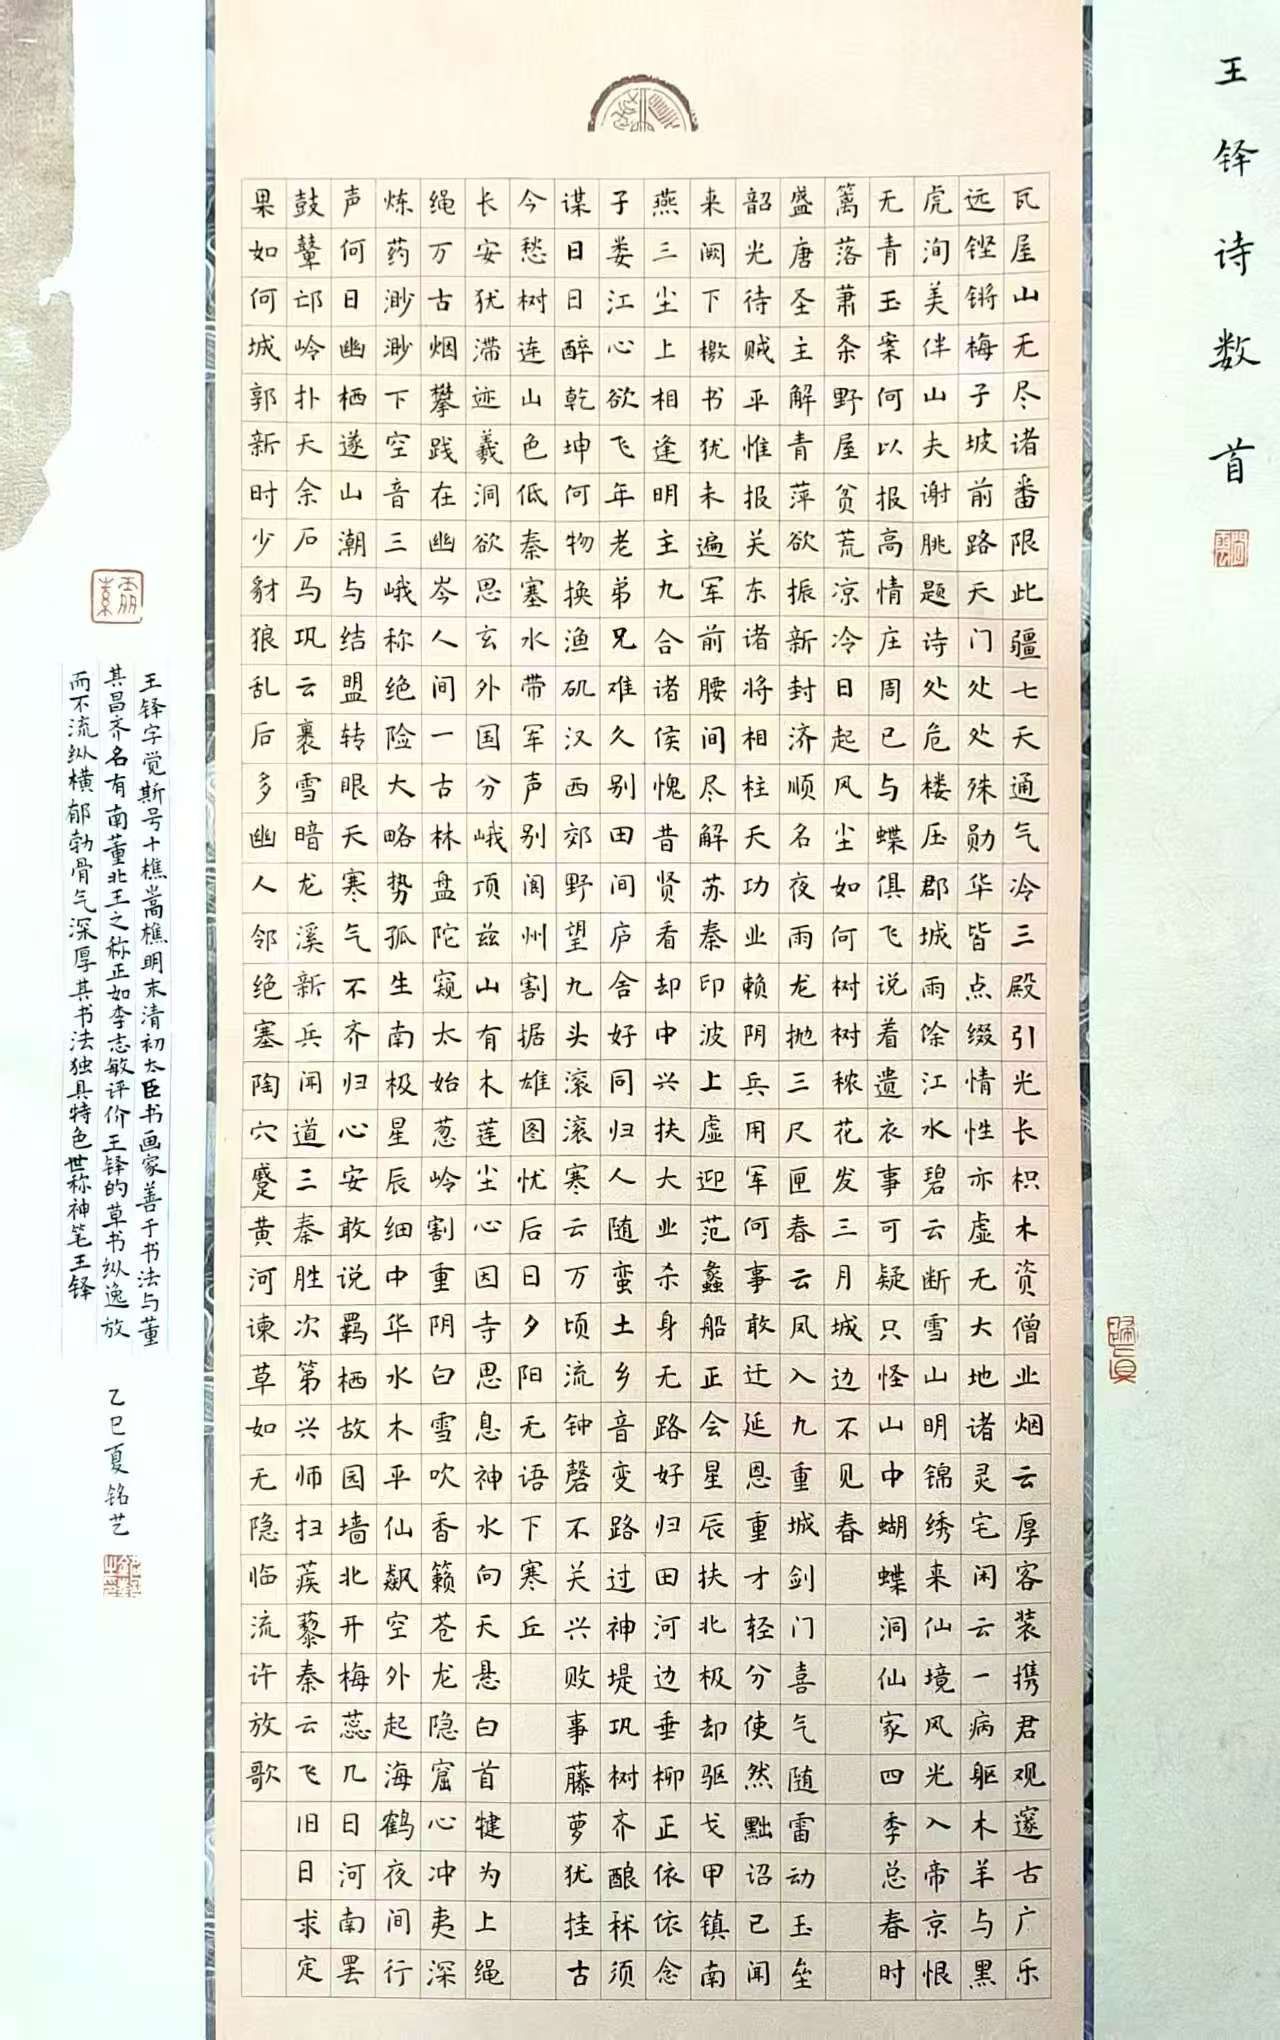 王铎诗数首
瓦屋山无尽诸番限此疆七天通气冷三殿引光长枳木资僧业烟云厚客装携君观邃古广乐
远铿锵梅子坡前路天门处处殊勋华皆点缀情性亦虚无大地诸灵宅闲云一病躯木羊与黑
虎洵美伴山夫谢朓题诗处危楼压郡城雨馀江水碧云断雪山明锦绣来仙境风光入帝京恨
无青玉案何以报高情庄周已与蝶俱飞说着遗衣事可疑只怪山中蝴蝶洞仙家四季总春时
篱落萧条野屋贫荒凉冷日起风尘如何树树秾花发三月城边不见春
盛唐圣主解青萍欲振新封济顺名夜雨龙抛三尺匣春云凤入九重城剑门喜气随雷动玉垒
韶光待贼平惟报关东诸将相柱天功业赖阴兵用军何事敢迁延恩重才轻分使然黜诏已闻
来阙下檄书犹未遍军前腰间尽解苏秦印波上虚迎范蠡船正会星辰扶北极却驱戈甲镇南
燕三尘上相逢明主九合诸侯愧昔贤看却中兴扶大业杀身无路好归田河边垂柳正依依念
子娄江心欲飞年老弟兄难久别田间庐舍好同归人随蛮土乡音变路过神堤巩树齐酿秫须
谋日日醉乾坤何物换渔矶汉西郊野望九头滚滚寒云万顷流钟磬不关兴败事藤萝犹挂古
今愁树连山色低秦塞水带军声别阆州割据雄图忧后日夕阳无语下寒丘
长安犹滞迹羲洞欲思玄外国分峨顶兹山有木莲尘心因寺思息神水向天悬白首犍为上绳
绳万古烟攀践在幽岑人间一古林盘陀窥太始葱岭割重阴白雪吹香籁苍龙隐窟心冲夷深
炼药渺渺下空音三峨称绝险大略势孤生南极星辰细中华水木平仙飙空外起海鹤夜间行
声何日幽栖遂山潮与结盟转眼天寒气不齐归心安敢说羁栖故园墙北开梅蕊几日河南罢
鼓鼙邙岭扑天余石马巩云裹雪暗龙溪新兵闻道三秦胜次第兴师扫蒺藜秦云飞旧日求定
果如何城郭新时少豺狼乱后多幽人邻绝塞陶穴蹙黄河谏草如无隐临流许放歌
王铎字觉斯号十樵嵩樵明末清初大臣书画家善于书法与董
其昌齐名有南董北王之称正如李志敏评价王铎的草书纵逸放
而不流纵横郁勃骨气深厚其书法独具特色世称神笔王铎
乙巳夏铭艺